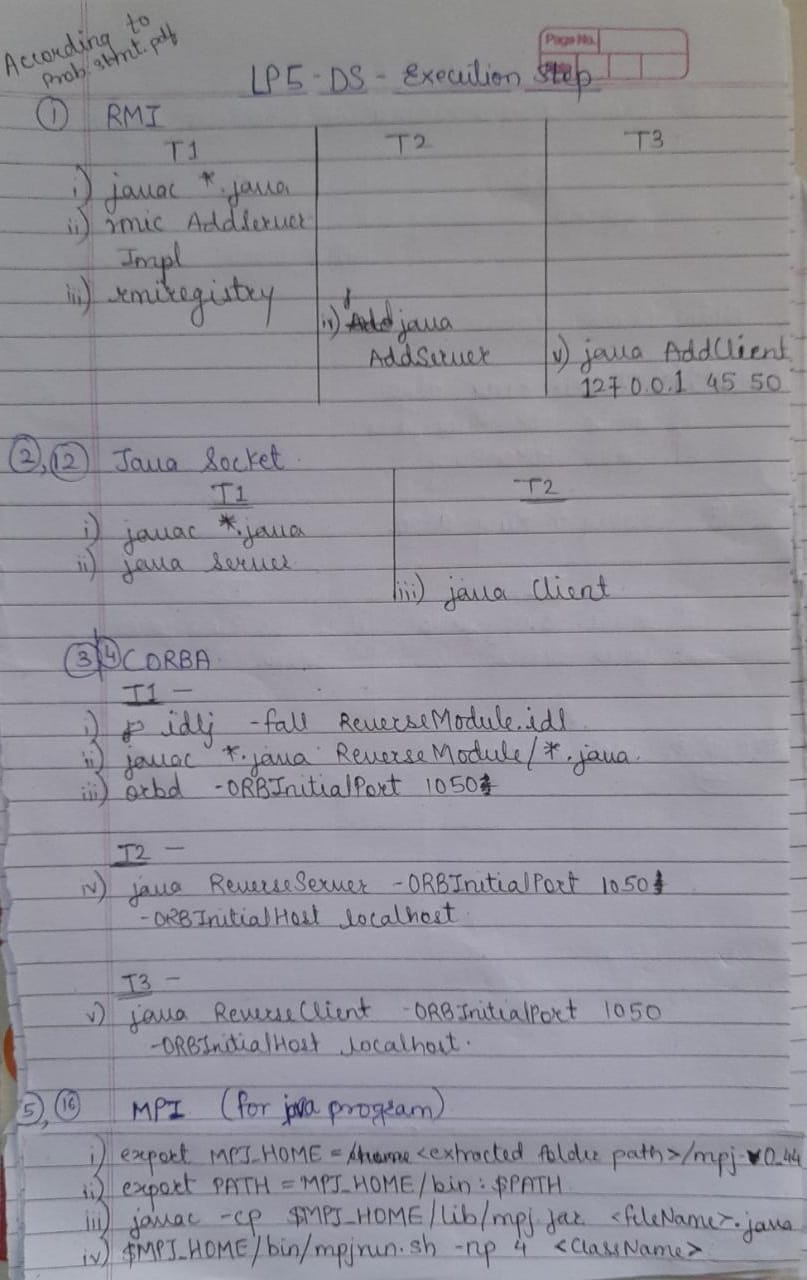 According to
prob. stmt. pdf
Page No.
LP5 - DS - Execution Step
① RMI
T1 T2 T3
i) javac *.java
ii) rmic AddServer
Impl
iii) rmiregistry
iv) java
AddServer
v) java AddClient
127.0.0.1 45 50
②,⑫ Java Socket
T1 T2
i) javac *.java
ii) java Server
iii) java Client
③,④ CORBA
T1 -
i) idlj -fall ReverseModule.idl
ii) javac *.java ReverseModule/*.java.
iii) orbd -ORBInitialPort 1050
T2 -
iv) java ReverseServer -ORBInitialPort 1050
-ORBInitialHost localhost
T3 -
v) java ReverseClient -ORBInitialPort 1050
-ORBInitialHost localhost.
⑤,⑯ MPI (for java program)
i) export MPJ_HOME = <extracted folder path>/mpj-v0_44
ii) export PATH = MPJ_HOME/bin : $PATH
iii) javac -cp $MPJ_HOME/lib/mpj.jar <fileName>.java
iv) $MPJ_HOME/bin/mpjrun.sh -np 4 <ClassName>